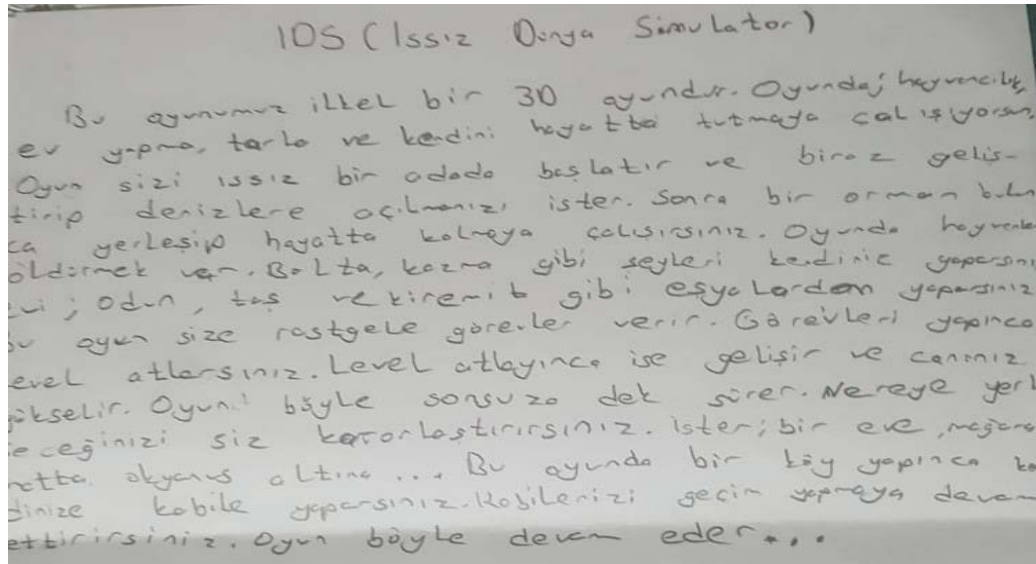 IDS (Issız Dünya Simulator)
Bu oyunumuz ilkel bir 3D oyundur. Oyunda; hayvancılık,
ev yapma, tarla ve kendini hayatta tutmaya çalışıyorsun
Oyun sizi ıssız bir adada başlatır ve biraz geliş-
tirip denizlere açılmanızı ister. Sonra bir orman
ca yerleşip hayatta kalmaya çalışırsınız. Oyunda
öldürmek var. Balta, kazma gibi şeyleri kendiniz
; odun, taş ve kiremit gibi eşyalardan yaparsınız
oyun size rastgele görevler verir. Görevleri yapınca
evel atlarsınız. Level atlayınca ise gelişir ve canınız
yükselir. Oyun böyle sonsuza dek sürer. Nereye yerl
eceğinizi siz kararlaştırırsınız. ister; bir eve, mağara
hatta okyanus altına ... Bu oyunda bir köy yapınca ke
dinize kabile yaparsınız. Kabilenizi geçim yapmaya devam
ettirirsiniz. Oyun böyle devam eder...